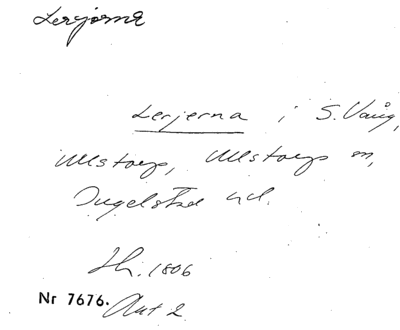 Lerjorna
Lerjerna i S. Vång,
Ullstorps, Ullstorps sn,
Ingelstad hd.
Sk. 1806
Nr 7676. Akt 2